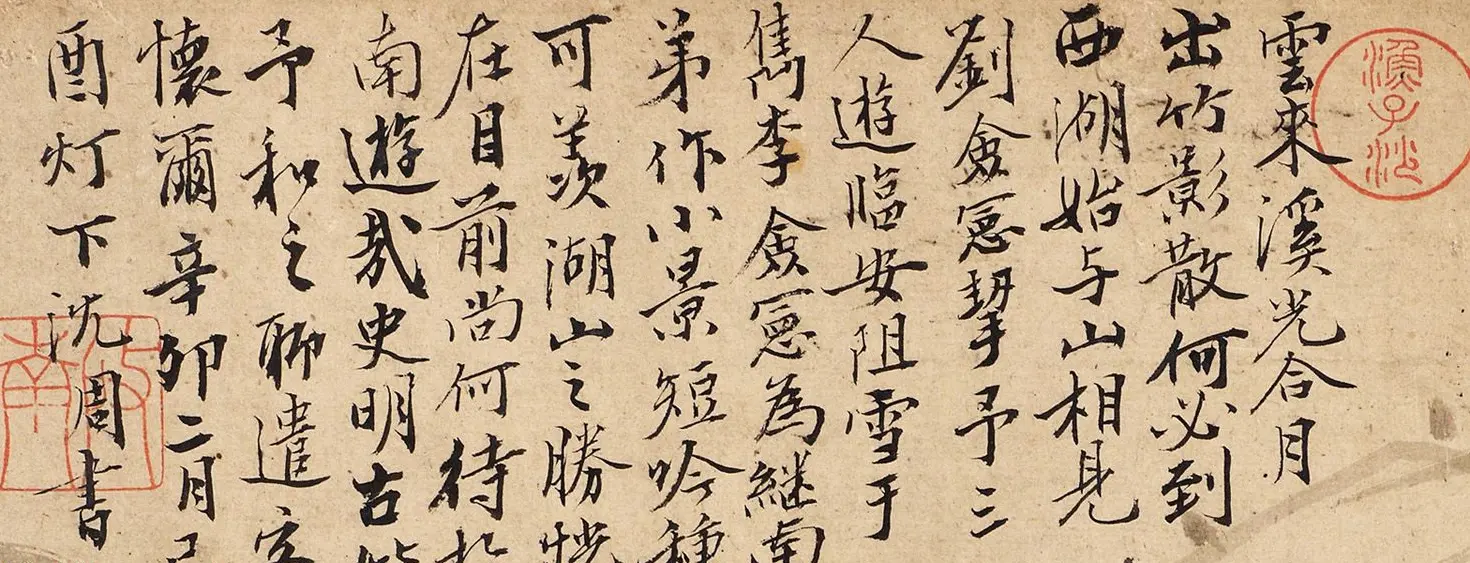 漁子沙
雲來溪光合月
出竹影散何必到
西湖始与山相見
劉僉憲挈予三
人遊臨安阻雪于
雋李僉憲為継南
弟作小景短吟種
可羨湖山之勝恍
在目前尚何待於
南遊哉史明古
予和之聊遣客
懷爾辛卯二月己
酉灯下沈周書
啟南